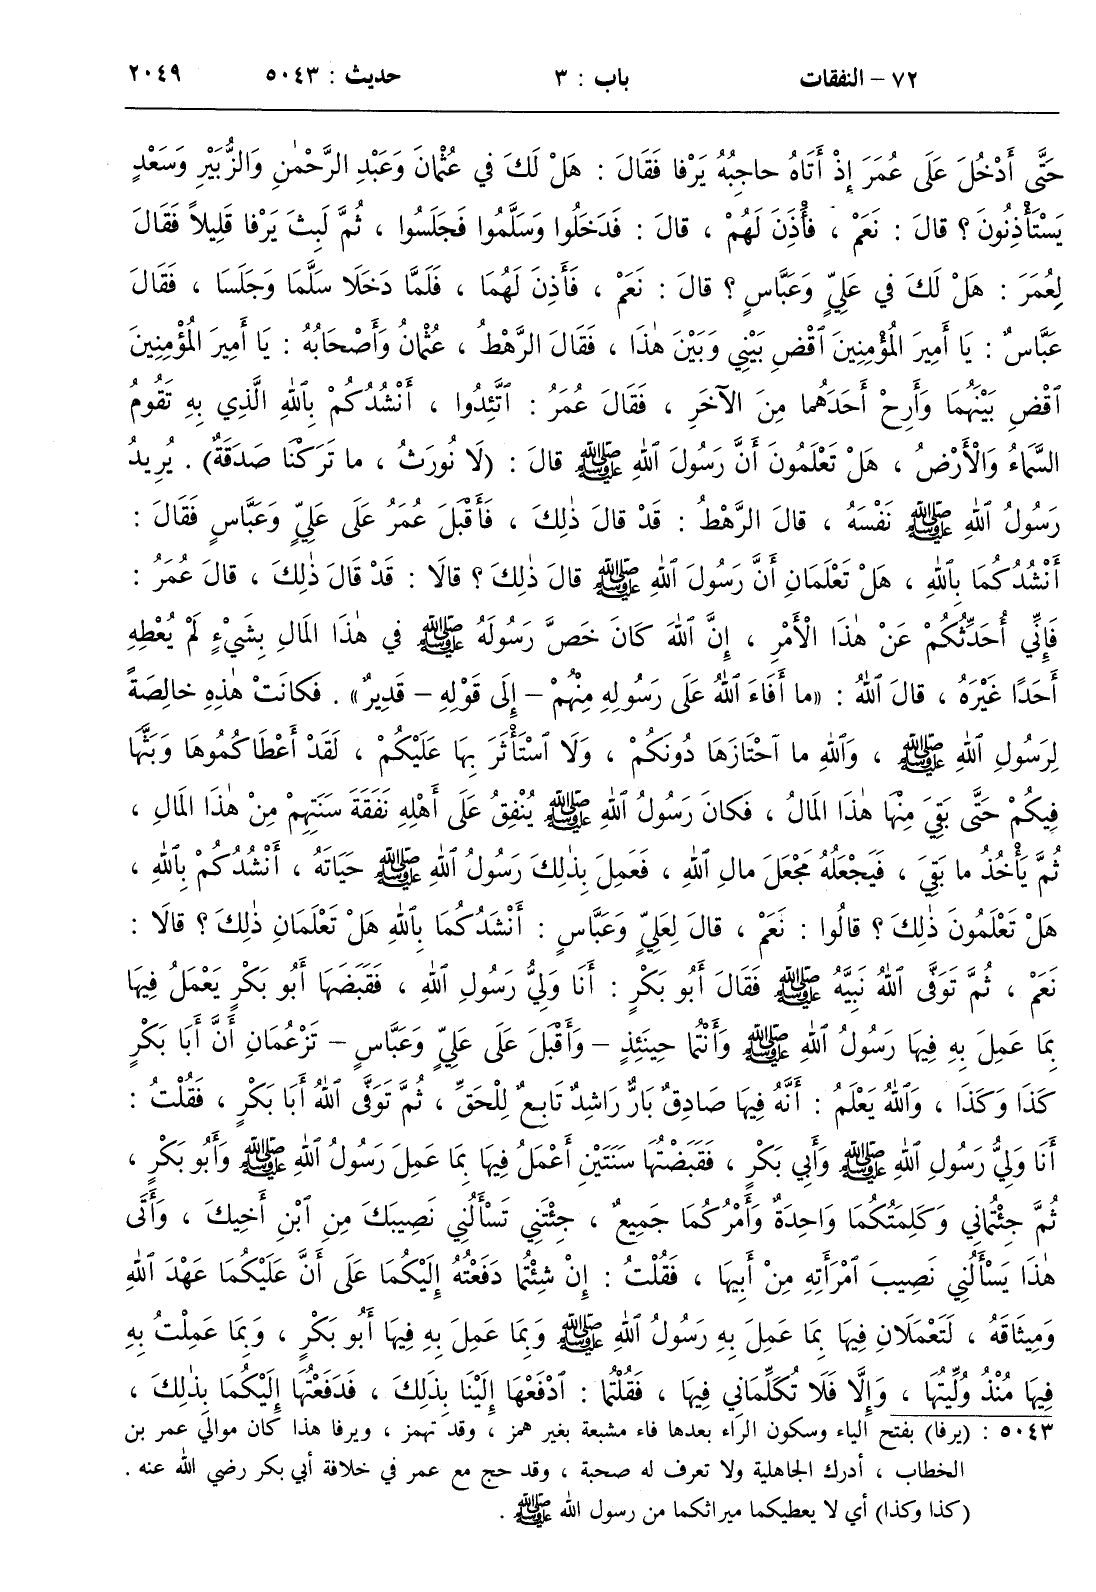 ٧٢ – النفقات باب : ٣ حديث : ٥٠٤٣ ٢٠٤٩
حَتَّى أَدْخُلَ عَلَى عُمَرَ إِذْ أَتَاهُ حاجِبُهُ يَرْفا فَقَالَ : هَلْ لَكَ في عُثْمانَ وَعَبْدِ الرَّحْمٰنِ وَالزُّبَيْرِ وَسَعْدٍ
يَسْتَأْذِنُونَ ؟ قالَ : نَعَمْ ، فَأْذَنَ لَهُمْ ، قالَ : فَدَخَلُوا وَسَلَّمُوا فَجَلَسُوا ، ثُمَّ لَبِثَ يَرْفا قَلِيلاً فَقَالَ
لِعُمَرَ : هَلْ لَكَ في عَلِيٍّ وَعَبَّاسٍ ؟ قالَ : نَعَمْ ، فَأَذِنَ لَهُمَا ، فَلَمَّا دَخَلَا سَلَّمَا وَجَلَسَا ، فَقَالَ
عَبَّاسٌ : يَا أَمِيرَ المُؤْمِنِينَ ٱقْضِ بَيْنِي وَبَيْنَ هٰذَا ، فَقَالَ الرَّهْطُ ، عُثْمانُ وَأَصْحَابُهُ : يَا أَمِيرَ المُؤْمِنِينَ
ٱقْضِ بَيْنَهُمَا وَأَرِحْ أَحَدَهُما مِنَ الآخَرِ ، فَقَالَ عُمَرُ : ٱتَّئِدُوا ، أَنْشُدُكُمْ بِٱللهِ الَّذِي بِهِ تَقُومُ
السَّمَاءُ وَالْأَرْضُ ، هَلْ تَعْلَمُونَ أَنَّ رَسُولَ ٱللهِ ﷺ قالَ : (لَا نُورَثُ ، ما تَرَكْنَا صَدَقَةٌ) . يُرِيدُ
رَسُولُ ٱللهِ ﷺ نَفْسَهُ ، قالَ الرَّهْطُ : قَدْ قالَ ذٰلِكَ ، فَأَقْبَلَ عُمَرُ عَلَى عَلِيٍّ وَعَبَّاسٍ فَقَالَ :
أَنْشُدُكُمَا بِٱللهِ ، هَلْ تَعْلَمَانِ أَنَّ رَسُولَ ٱللهِ ﷺ قالَ ذٰلِكَ ؟ قالَا : قَدْ قَالَ ذٰلِكَ ، قالَ عُمَرُ :
فَإِنِّي أُحَدِّثُكُمْ عَنْ هٰذَا الْأَمْرِ ، إِنَّ ٱللهَ كَانَ خَصَّ رَسُولَهُ ﷺ في هٰذَا المَالِ بِشَيْءٍ لَمْ يُعْطِهِ
أَحَدًا غَيْرَهُ ، قالَ ٱللهُ : «ما أَفَاءَ ٱللهُ عَلَى رَسُولِهِ مِنْهُمْ – إِلَى قَوْلِهِ – قَدِيرٌ» . فَكانَتْ هٰذِهِ خالِصَةً
لِرَسُولِ ٱللهِ ﷺ ، وَٱللهِ ما ٱحْتَازَهَا دُونَكُمْ ، وَلَا ٱسْتَأْثَرَ بِهَا عَلَيْكُمْ ، لَقَدْ أَعْطَاكُمُوهَا وَبَثَّهَا
فِيكُمْ حَتَّى بَقِيَ مِنْهَا هٰذَا المَالُ ، فَكانَ رَسُولُ ٱللهِ ﷺ يُنْفِقُ عَلَى أَهْلِهِ نَفَقَةَ سَنَتِهِمْ مِنْ هٰذَا المَالِ ،
ثُمَّ يَأْخُذُ ما بَقِيَ ، فَيَجْعَلُهُ مَجْعَلَ مالِ ٱللهِ ، فَعَمِلَ بِذٰلِكَ رَسُولُ ٱللهِ ﷺ حَيَاتَهُ ، أَنْشُدُكُمْ بِٱللهِ ،
هَلْ تَعْلَمُونَ ذٰلِكَ ؟ قالُوا : نَعَمْ ، قالَ لِعَلِيٍّ وَعَبَّاسٍ : أَنْشُدُكُمَا بِٱللهِ هَلْ تَعْلَمَانِ ذٰلِكَ ؟ قالَا :
نَعَمْ ، ثُمَّ تَوَفَّى ٱللهُ نَبِيَّهُ ﷺ فَقَالَ أَبُو بَكْرٍ : أَنَا وَلِيُّ رَسُولِ ٱللهِ ، فَقَبَضَهَا أَبُو بَكْرٍ يَعْمَلُ فِيهَا
بِمَا عَمِلَ بِهِ فِيهَا رَسُولُ ٱللهِ ﷺ وَأَنْتُما حِينَئِذٍ – وَأَقْبَلَ عَلَى عَلِيٍّ وَعَبَّاسٍ – تَزْعُمَانِ أَنَّ أَبَا بَكْرٍ
كَذَا وَكَذَا ، وَٱللهُ يَعْلَمُ : أَنَّهُ فِيهَا صَادِقٌ بَارٌّ رَاشِدٌ تَابِعٌ لِلْحَقِّ ، ثُمَّ تَوَفَّى ٱللهُ أَبَا بَكْرٍ ، فَقُلْتُ :
أَنَا وَلِيُّ رَسُولِ ٱللهِ ﷺ وَأَبِي بَكْرٍ ، فَقَبَضْتُهَا سَنَتَيْنِ أَعْمَلُ فِيهَا بِمَا عَمِلَ رَسُولُ ٱللهِ ﷺ وَأَبُو بَكْرٍ ،
ثُمَّ جِئْتُمانِي وَكَلِمَتُكُمَا وَاحِدَةٌ وَأَمْرُكُمَا جَمِيعٌ ، جِئْتَنِي تَسْأَلُنِي نَصِيبَكَ مِنِ ٱبْنِ أَخِيكَ ، وَأَتَى
هٰذَا يَسْأَلُنِي نَصِيبَ ٱمْرَأَتِهِ مِنْ أَبِيهَا ، فَقُلْتُ : إِنْ شِئْتُما دَفَعْتُهُ إِلَيْكُمَا عَلَى أَنَّ عَلَيْكُمَا عَهْدَ ٱللهِ
وَمِيثَاقَهُ ، لَتَعْمَلَانِ فِيهَا بِمَا عَمِلَ بِهِ رَسُولُ ٱللهِ ﷺ وَبِمَا عَمِلَ بِهِ فِيهَا أَبُو بَكْرٍ ، وَبِمَا عَمِلْتُ بِهِ
فِيهَا مُنْذُ وُلِّيتُهَا ، وَإِلَّا فَلَا تُكَلِّمَانِي فِيهَا ، فَقُلْتُما : ٱدْفَعْهَا إِلَيْنَا بِذٰلِكَ ، فَدَفَعْتُهَا إِلَيْكُمَا بِذٰلِكَ ،
٥٠٤٣ : (يرفا) بفتح الياء وسكون الراء بعدها فاء مشبعة بغير همز ، وقد تهمز ، ويرفا هذا كان موالي عمر بن
الخطاب ، أدرك الجاهلية ولا تعرف له صحبة ، وقد حج مع عمر في خلافة أبي بكر رضي الله عنه .
(كذا وكذا) أي لا يعطيكما ميراثكما من رسول الله ﷺ .